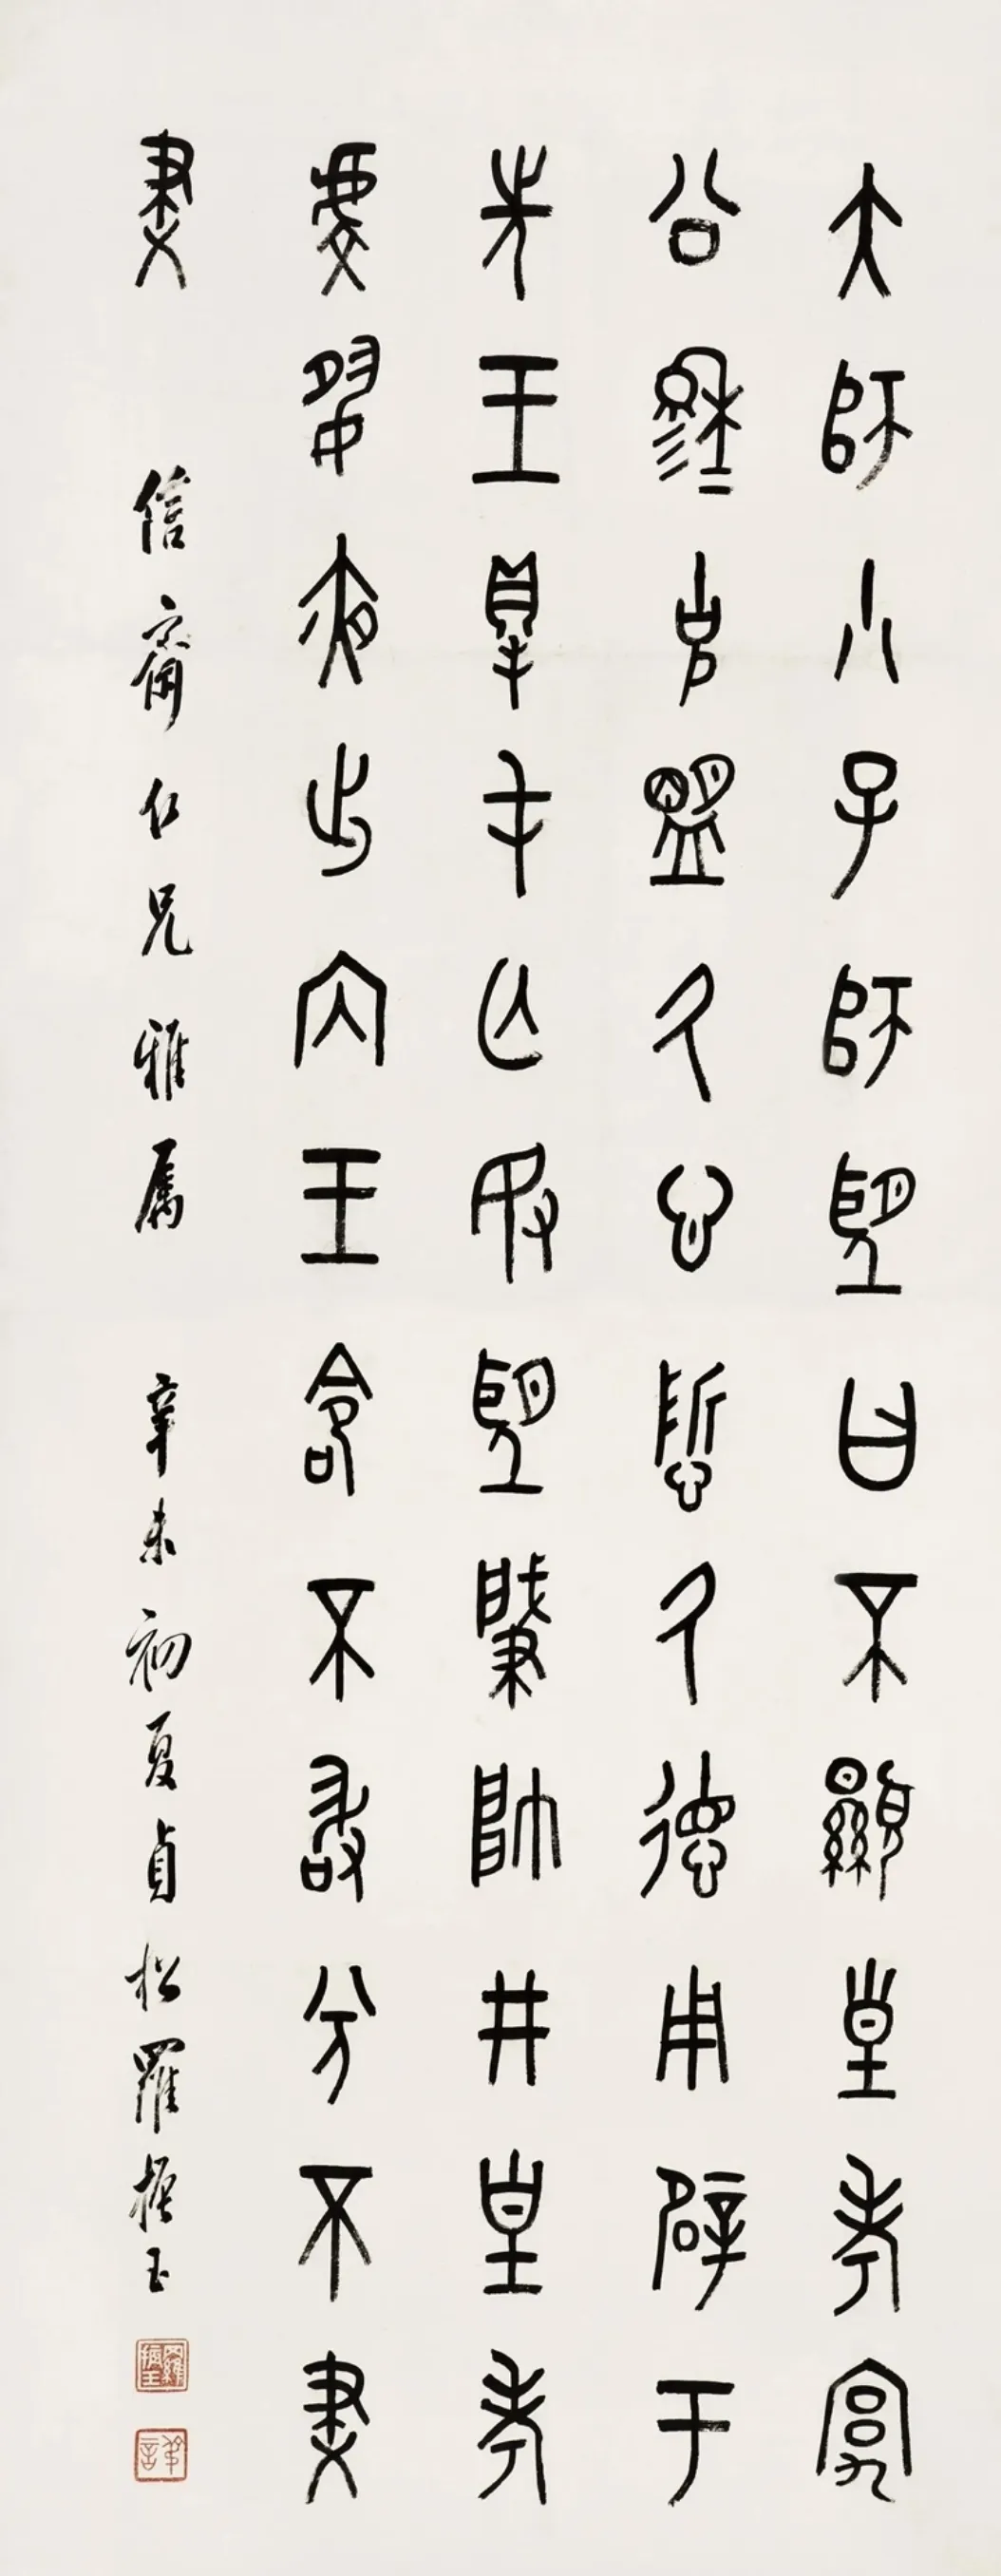 大師小子師望曰不顯皇考宄
公穆=克盟氒心悊氒德用辟于
先王得屯亡敃望肇帥井皇考
虔夙夜出內王命不敢㒸不妻
妻 信齋仁兄雅屬 辛未初夏貞松羅振玉
羅振玉
叔言